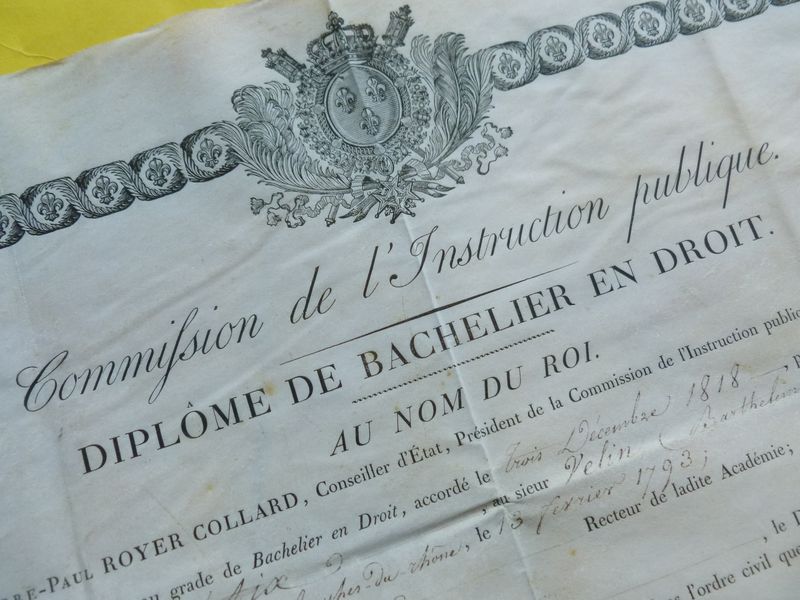 Commission de l'Instruction publique.
DIPLÔME DE BACHELIER EN DROIT.
AU NOM DU ROI.
RE-PAUL ROYER COLLARD, Conseiller d'État, Président de la Commission de l'Instruction publiq
u grade de Bachelier en Droit, accordé le trois Décembre 1818
Aix au sieur Velin (Barthélem
ches-du-rhône, le 13 février 1793;
Recteur de ladite Académie;
, le D
es l'ordre civil que